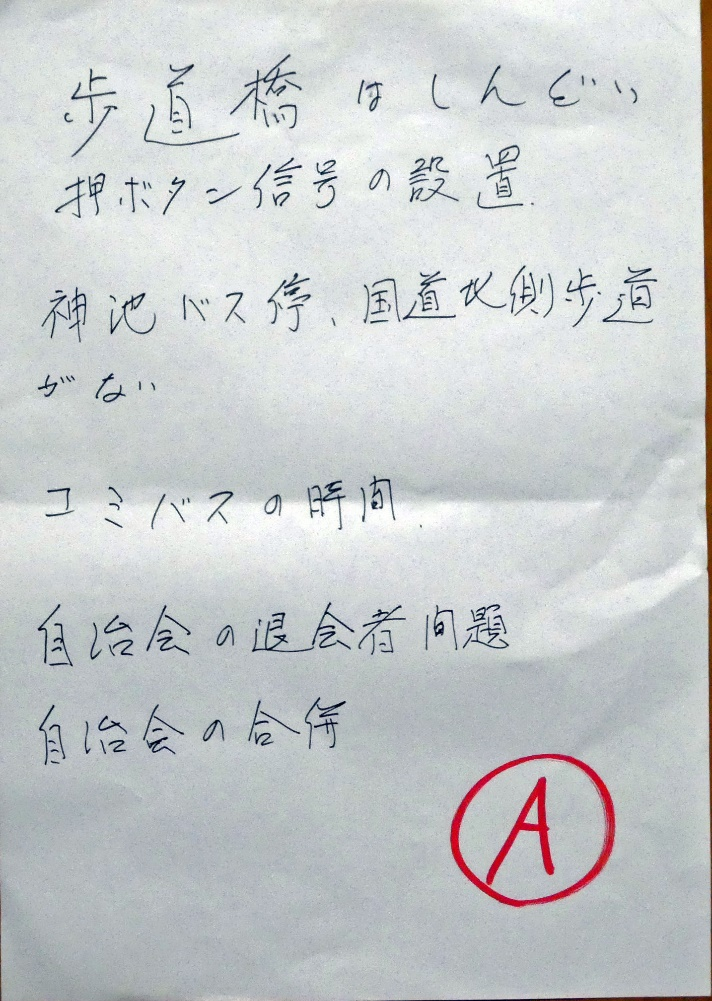 歩道橋はしんどい
押ボタン信号の設置.
神池バス停、国道北側歩道
がない
コミバスの時間.
自治会の退会者問題
自治会の合併
A